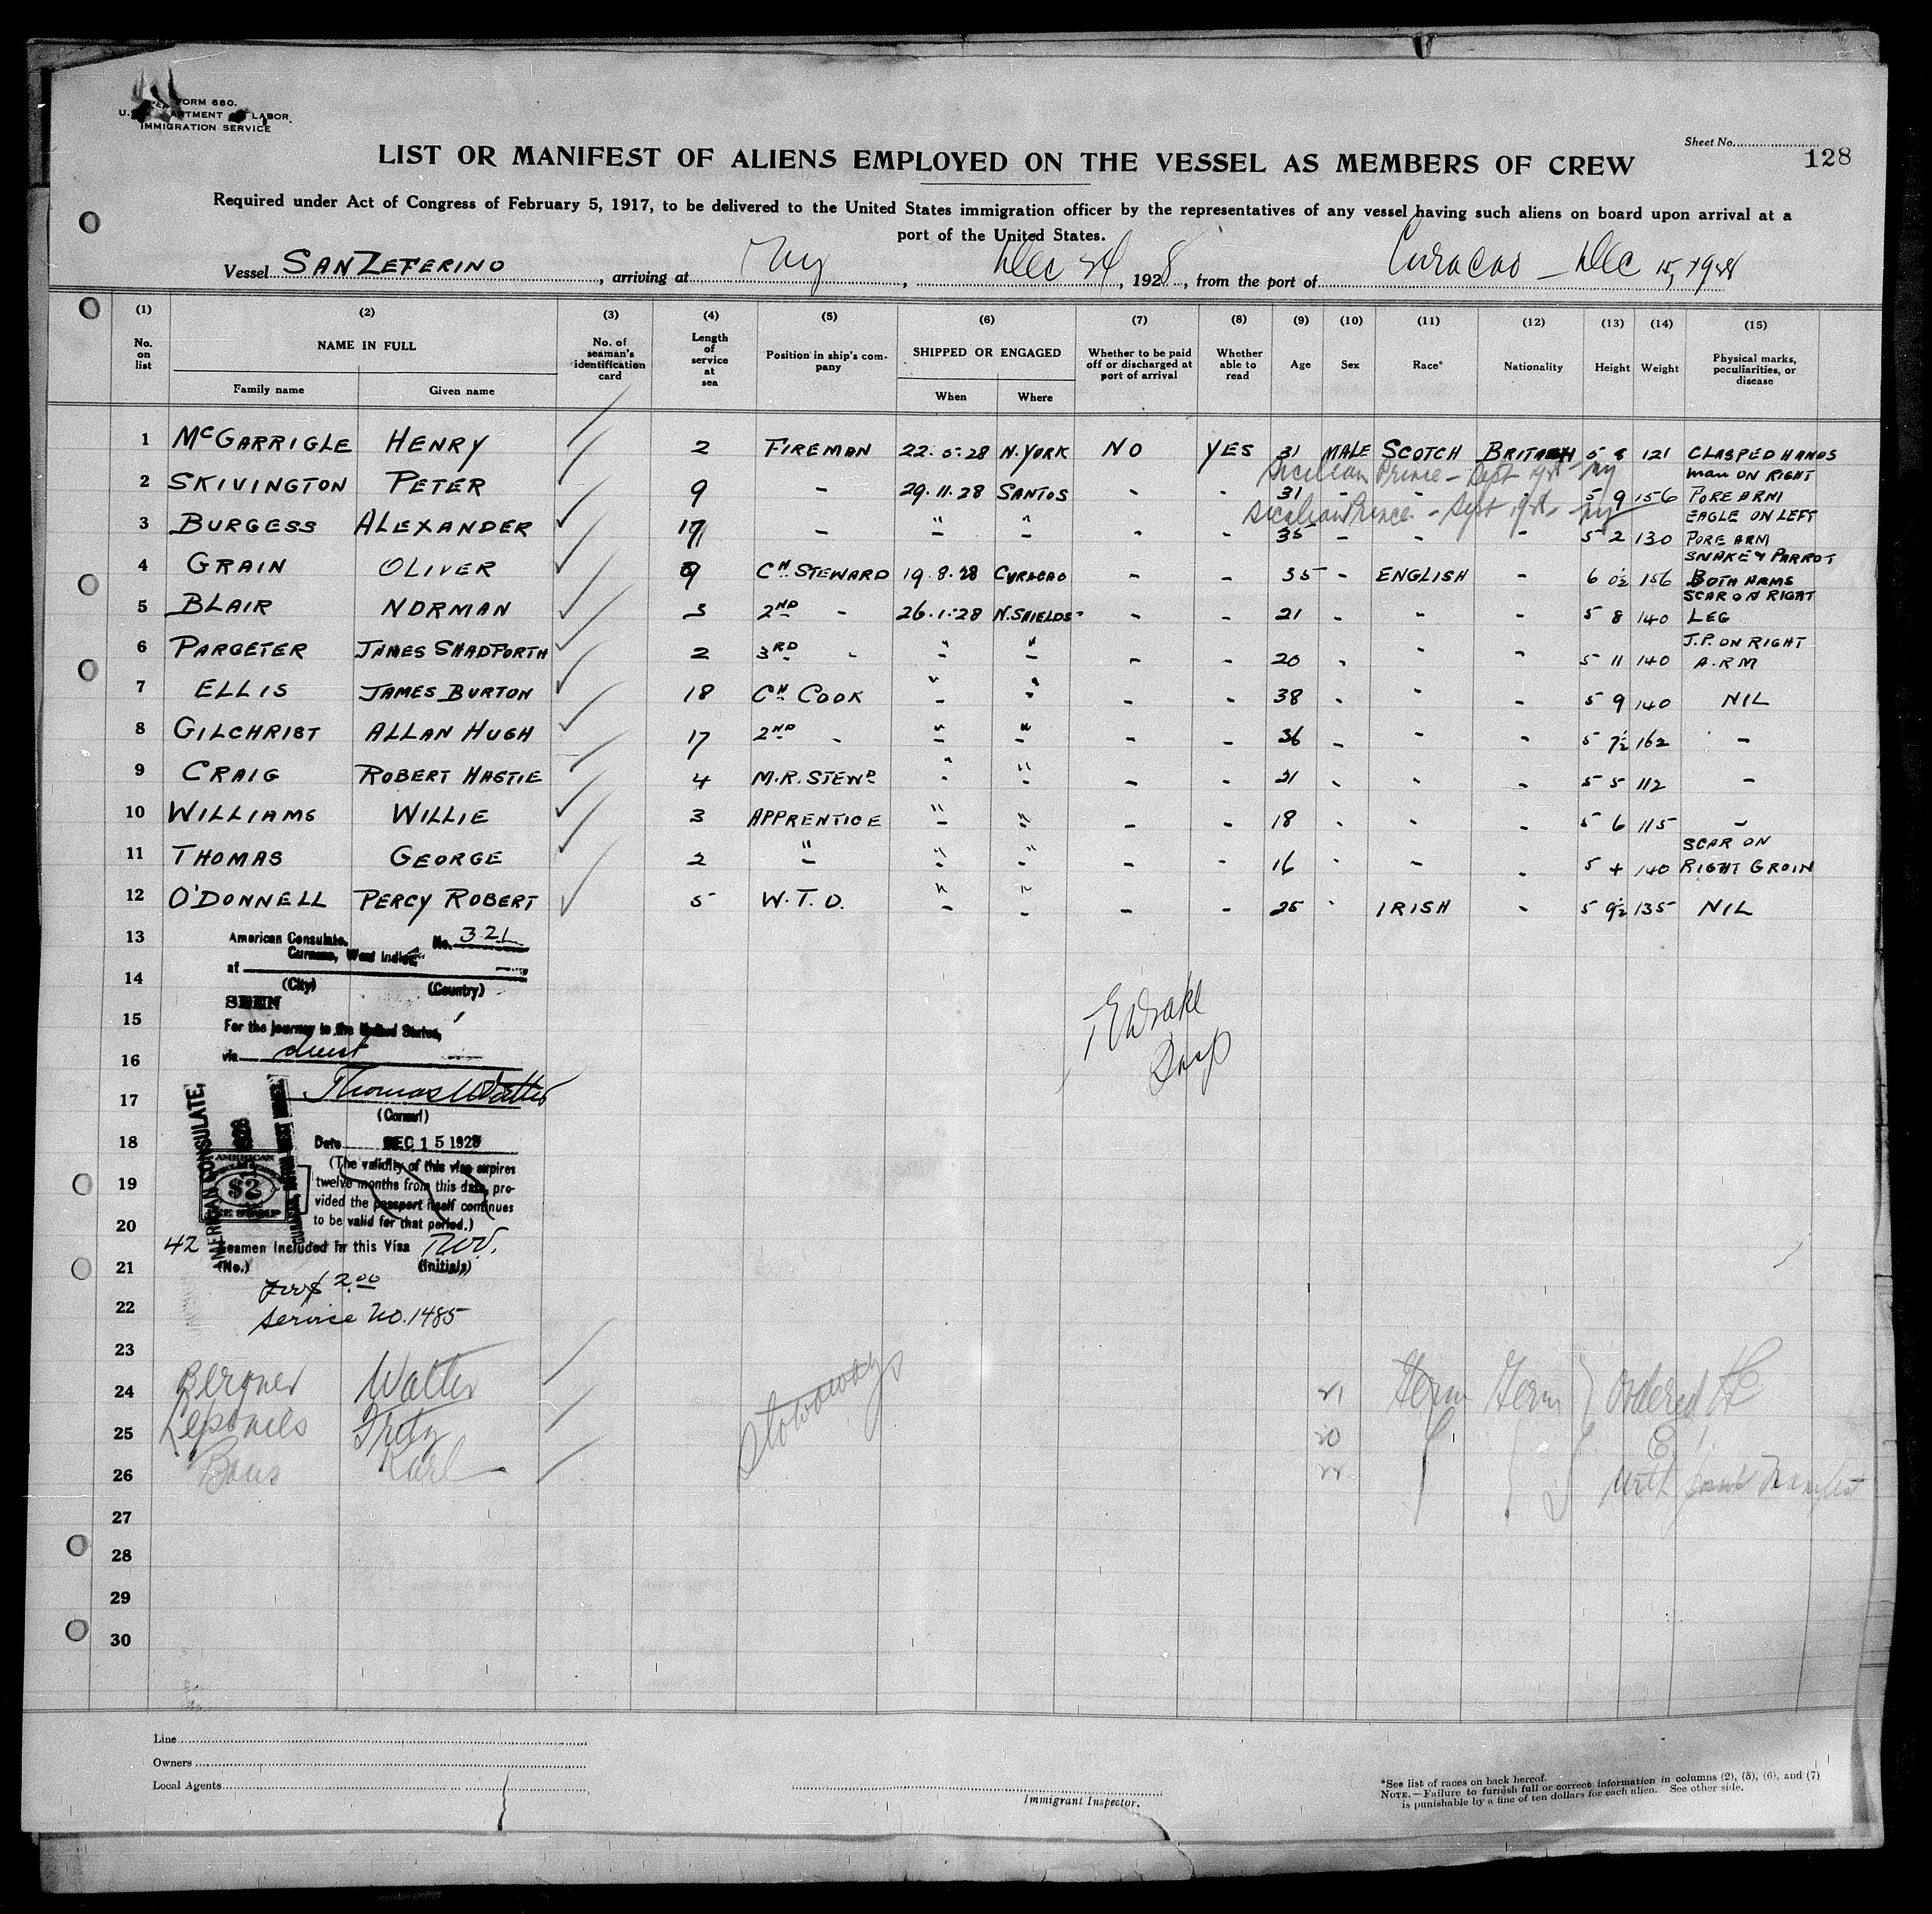 FORM 680.
U. DEPARTMENT OF LABOR
IMMIGRATION SERVICE
Sheet No.
128
LIST OR MANIFEST OF ALIENS EMPLOYED ON THE VESSEL AS MEMBERS OF CREW
Required under Act of Congress of February 5, 1917, to be delivered to the United States immigration officer by the representatives of any vessel having such aliens on board upon arrival at a
port of the United States.
Vessel SAN ZEFERINO, arriving at NY, Dec 24, 1928, from the port of Curacao - Dec 15, 1928
(1) (2) (3) (4) (5) (6) (7) (8) (9) (10) (11) (12) (13) (14) (15)
No. on list NAME IN FULL No. of seaman's identification card Length of service at sea Position in ship's company SHIPPED OR ENGAGED Whether to be paid off or discharged at port of arrival Whether able to read Age Sex Race* Nationality Height Weight Physical marks, peculiarities, or disease
Family name Given name When Where
1 McGARRIGLE HENRY 2 FIREMAN 22.5.28 N.YORK NO YES 31 MALE SCOTCH BRITISH 5 8 121 CLASPED HANDS
Sicilian Prince - Sept 1928 - NY
2 SKIVINGTON PETER 9 - 29.11.28 SANTOS - - 31 - - - 5 9 156 MAN ON RIGHT FORE ARM
Sicilian Prince - Sept 1928 - NY
3 BURGESS ALEXANDER 17 - " " - - 35 - - - 5 2 130 EAGLE ON LEFT FORE ARM
4 GRAIN OLIVER 9 CH STEWARD 19.8.28 CURACAO - - 35 - ENGLISH - 6 0½ 156 SNAKE & PARROT BOTH ARMS
5 BLAIR NORMAN 3 2ND - 26.1.28 N.SHIELDS - - 21 - - - 5 8 140 SCAR ON RIGHT LEG
6 PARGETER JAMES SHADFORTH 2 3RD - " " - - 20 - - - 5 11 140 J.P. ON RIGHT ARM
7 ELLIS JAMES BURTON 18 CH COOK " " - - 38 - - - 5 9 140 NIL
8 GILCHRIST ALLAN HUGH 17 2ND - " " - - 36 - - - 5 7½ 162 -
9 CRAIG ROBERT HASTIE 4 M.R. STEWD " " - - 21 - - - 5 5 112 -
10 WILLIAMS WILLIE 3 APPRENTICE " " - - 18 - - - 5 6 115 -
11 THOMAS GEORGE 2 " " " - - 16 - - - 5 4 140 SCAR ON RIGHT GROIN
12 O'DONNELL PERCY ROBERT 5 W.T.D. " " - - 25 - IRISH - 5 9½ 135 NIL
13
American Consulate, No. 321
Curacao, West Indies.
14
at
(City) (Country)
SEEN
15
For the journey to the United States,
16
via direct
17
(Consul)
18
Date DEC 15 1928
(The validity of this visa expires
19
twelve months from this date, pro-
vided the passport itself continues
20
to be valid for that period.)
42 Seamen Included in this Visa
21
(No.) (Initials)
AMERICAN CONSULATE,
1928
AMERICAN
$2
FEE STAMP
$ 2.00
22
Service No. 1485
23
24 Bergner Walter Stowaways 21 Germ Germ Ordered
25 Fritz 20
26 Karl 22
27
28
29
30
Line
Owners
Local Agents
Immigrant Inspector.
*See list of races on back hereof.
NOTE.—Failure to furnish full or correct information in columns (2), (5), (6), and (7)
is punishable by a fine of ten dollars for each alien. See other side.